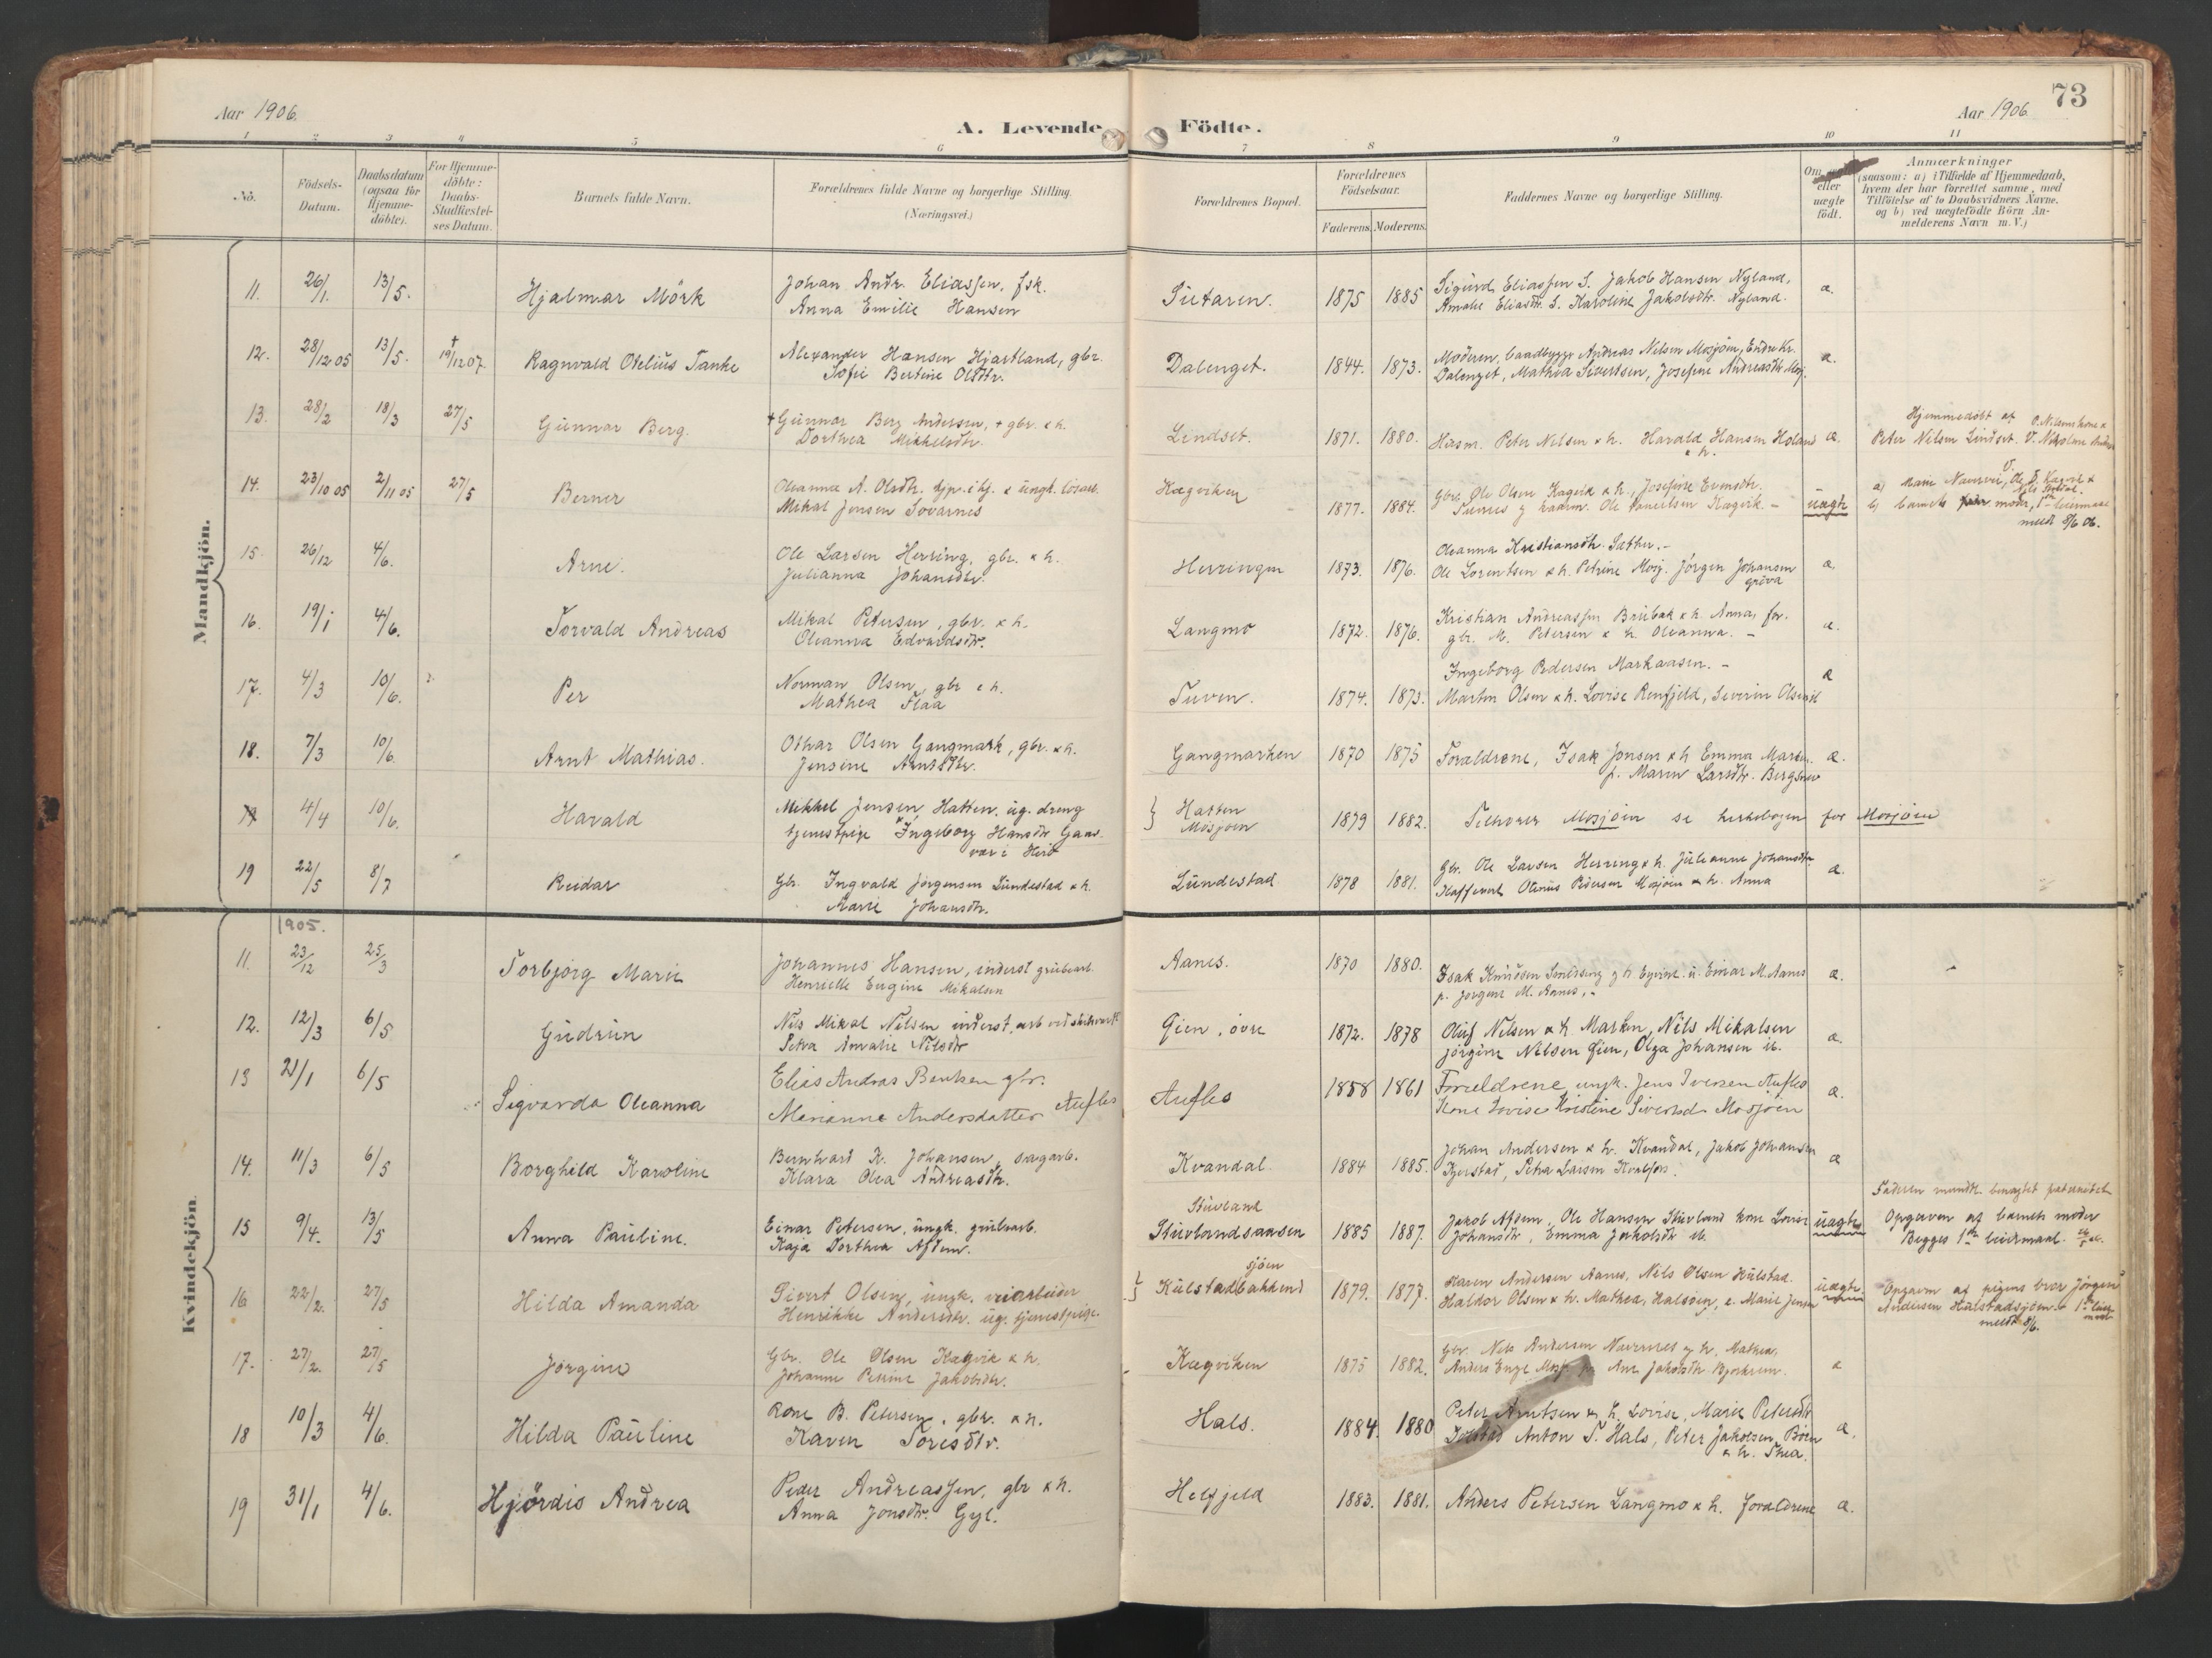 73
Aar 1906.
Aar 1906
A. Levende Födte.
1 2 3 4 5 6 7 8 9 10 11
No.
Födsels-Datum.
Daabsdatum (ogsaa for Hjemme-döbte).
For Hjemme-döbte: Daabs-Stadfæstel-ses Datum.
Barnets fulde Navn.
Forældrenes fulde Navne og borgerlige Stilling.
(Næringsvei.)
Forældrenes Bopæl.
Forældrenes Födselsaar.
Faderens. Moderens.
Faddernes Navne og borgerlige Stilling.
Om eller uægte födt.
Anmærkninger
(saasom: a) i Tilfælde af Hjemmedaab,
hvem der har forrettet samme, med
Tilföielse af to Daabsvidners Navne.
og b) ved uægtefödte Börn An-
melderens Navn m.V.)
Mandkjön.
11. 26/1. 13/5. Hjalmar Mörk Johan Andr. Eliassen, fsk. 1875 1885 Sigurd Eliassen S. Jakob Hansen Nyland, æ.
Anna Emilie Hansen Amalie Eliasdtr. S. Karoline Jakobsdtr. Nyland.
12. 28/12 05 13/5. † 19/12 07. Ragnvald Otelius Tanke Alexander Hansen Hjartland, gbr. Dalenget. 1844. 1873. Moderen, baadbygger Andreas Nilsen Mosjöen, Endre Kr. æ.
Sofie Bertine Olsdtr. Dalenget, Mathea Sivertsen, Josefine Andreasdtr. Mosj.
13. 28/2 18/3 27/5 Gunnar Berg. † Gunnar Berg Andersen, † gbr. & h. Lindset. 1871. 1880. Husm. Peter Nilsen & h. Harald Hansen Holand æ.
Dorthea Mikkelsdtr. & h.
Hjemmedöbt af
Peter Nilsen Lindset.
14. 23/10 05 2/11 05 27/5 Berner Oleanna A. Olsdtr. Hægviken 1877. 1884. gbr. Ole Olsen Kægvik & h., Josefine uægte
Mikal Jensen Sovarnes
b) barnets moder, meldt 8/6 06.
15. 26/12 4/6. Arne. Ole Larsen Herring, gbr. & h. Herringen 1873. 1876. Oleanna Kristiansdtr. Sæther.- æ
Julianna Johansdtr. Ole Lorentsen & h. Petrine Mosj. Jörgen Johansen
16. 19/1 4/6. Torvald Andreas Mikal Petersen, gbr. & h. Langmo 1872. 1876. Kristian Andreassen Brubak & h. Anna, for. æ.
Oleanna Edvardsdtr. gbr. M. Petersen & h. Oleanna. -
17. 4/3 10/6. Per Norman Olsen, gbr & h. Tuven. 1874. 1873. Ingeborg Pedersen Markaasen. - æ
Mathea Flaa Martin Olsen & h. Lovise Renfjeld, Severin Olsen
18. 7/3 10/6. Arnt Mathias. Othar Olsen Gangmark, gbr. & h. Gangmarken 1870 1875 Forældrene, Isak Jonsen & h Emma Marken. æ.
Jensine Arntsdtr. p. Maren Larsdtr.
4/4 10/6. Harald Mikkel Jensen, Hatten. ug. dreng } Hatten 1879 1882. Tilhörer Mosjöen se kirkebogen for Mosjöen
tjenestpige Ingeborg Hansdtr Mosjöen
19 22/5 8/7 Reidar Gbr. Ingvald Jörgensen Lundestad & h. Lundestad. 1878 1881. Gbr. Ole Larsen Herring & h. Julianne Johansdtr. æ.
Marie Johansdtr. Olenius Pedersen Mosjöen & h. Anna
Kvindekjön.
1905.
11. 23/12 25/3 Torbjörg Marie Johannes Hansen, inderst grubearb. Aanes. 1870 1880. Isak Knudsen Einar M. Aanes æ.
Henriette Eugine Mikalsen p. Jörgine M. Aanes, -
12. 12/3 6/5 Gudrun Nils Mikal Nilsen inderst, arb. Öien, övre 1872. 1878 Oluf Nilsen & h Marken, Nils Mikalsen æ.
Petra Amalie Nilsdtr Jörgine Nilsen Öien, Olga Johansen ib.
13 21/1 6/5 Sigvarda Oleanna Elias Andreas Bentsen gbr. Aufles 1858 1861 Forældrene, ungk. Jens Iversen Aufles æ.
Marianne Andersdatter Aufles Kone Lovise Kristine Mosjöen
14. 11/3 6/5 Borghild Karoline Bernhard K. Johansen, sagarb. Kvandal. 1884 1885. Johan Andersen & h. Kvandal, Jakob Johansen æ
Klara Olea Andreasdtr. Petra Larsen
15 9/4. 13/5 Anna Pauline. Einar Petersen, ungk. grubearb. Stuvland Stuvlandsaasen 1885 1887. Jakob Ole Hansen Stuvland kone Lovise uægte
Kaja Dorthea Johansdtr, Emma Jakobsdtr ib.
Faderen mundtl. benægtet paternitet
Opgaven af barnets moder
Begges 1ste leiermaal.
16 22/2. 27/5 Hilda Amanda Sivert Olsen, ungk. veiarbeider } sjöen Kulstadbakken 1879. 1877. Karen Andersen Aanes, Nils Olsen Kulstad. uægte.
Henrikke Andersdtr. ug. tjenestpige. Haldor Olsen & h. Mathea, Halsöien, e. Marie Jensen
Opgaven af pigens bror Jörgen
Andersen
meldt 8/6.
17. 27/2. 27/5 Jörgine Gbr. Ole Olsen Kægvik & h. Kægviken 1875 1882. Gbr. Nils Andersen Navernes & h. Mathea, æ
Johanne Petrine Jakobsdtr. Anders Enge Mosj. Ane Jakobsdtr
18 10/3 4/6. Hilda Pauline Rone B. Petersen, gbr. & h. Hals. 1884. 1880 Peter Arntsen & h. Lovise, Marie Petersdtr æ.
Karen Toresdtr. Anton T. Hals, Peter Jakobsen,
& h. Thea.
19 31/1 4/6. Hjördis Andrea Peder Andreassen, gbr & h. Helfjeld 1883. 1881. Anders Petersen Langmo & h. forældrene æ.
Anna Jonsdtr.